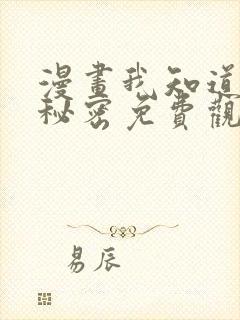 漫畫我知道
秘密免費觀
易辰